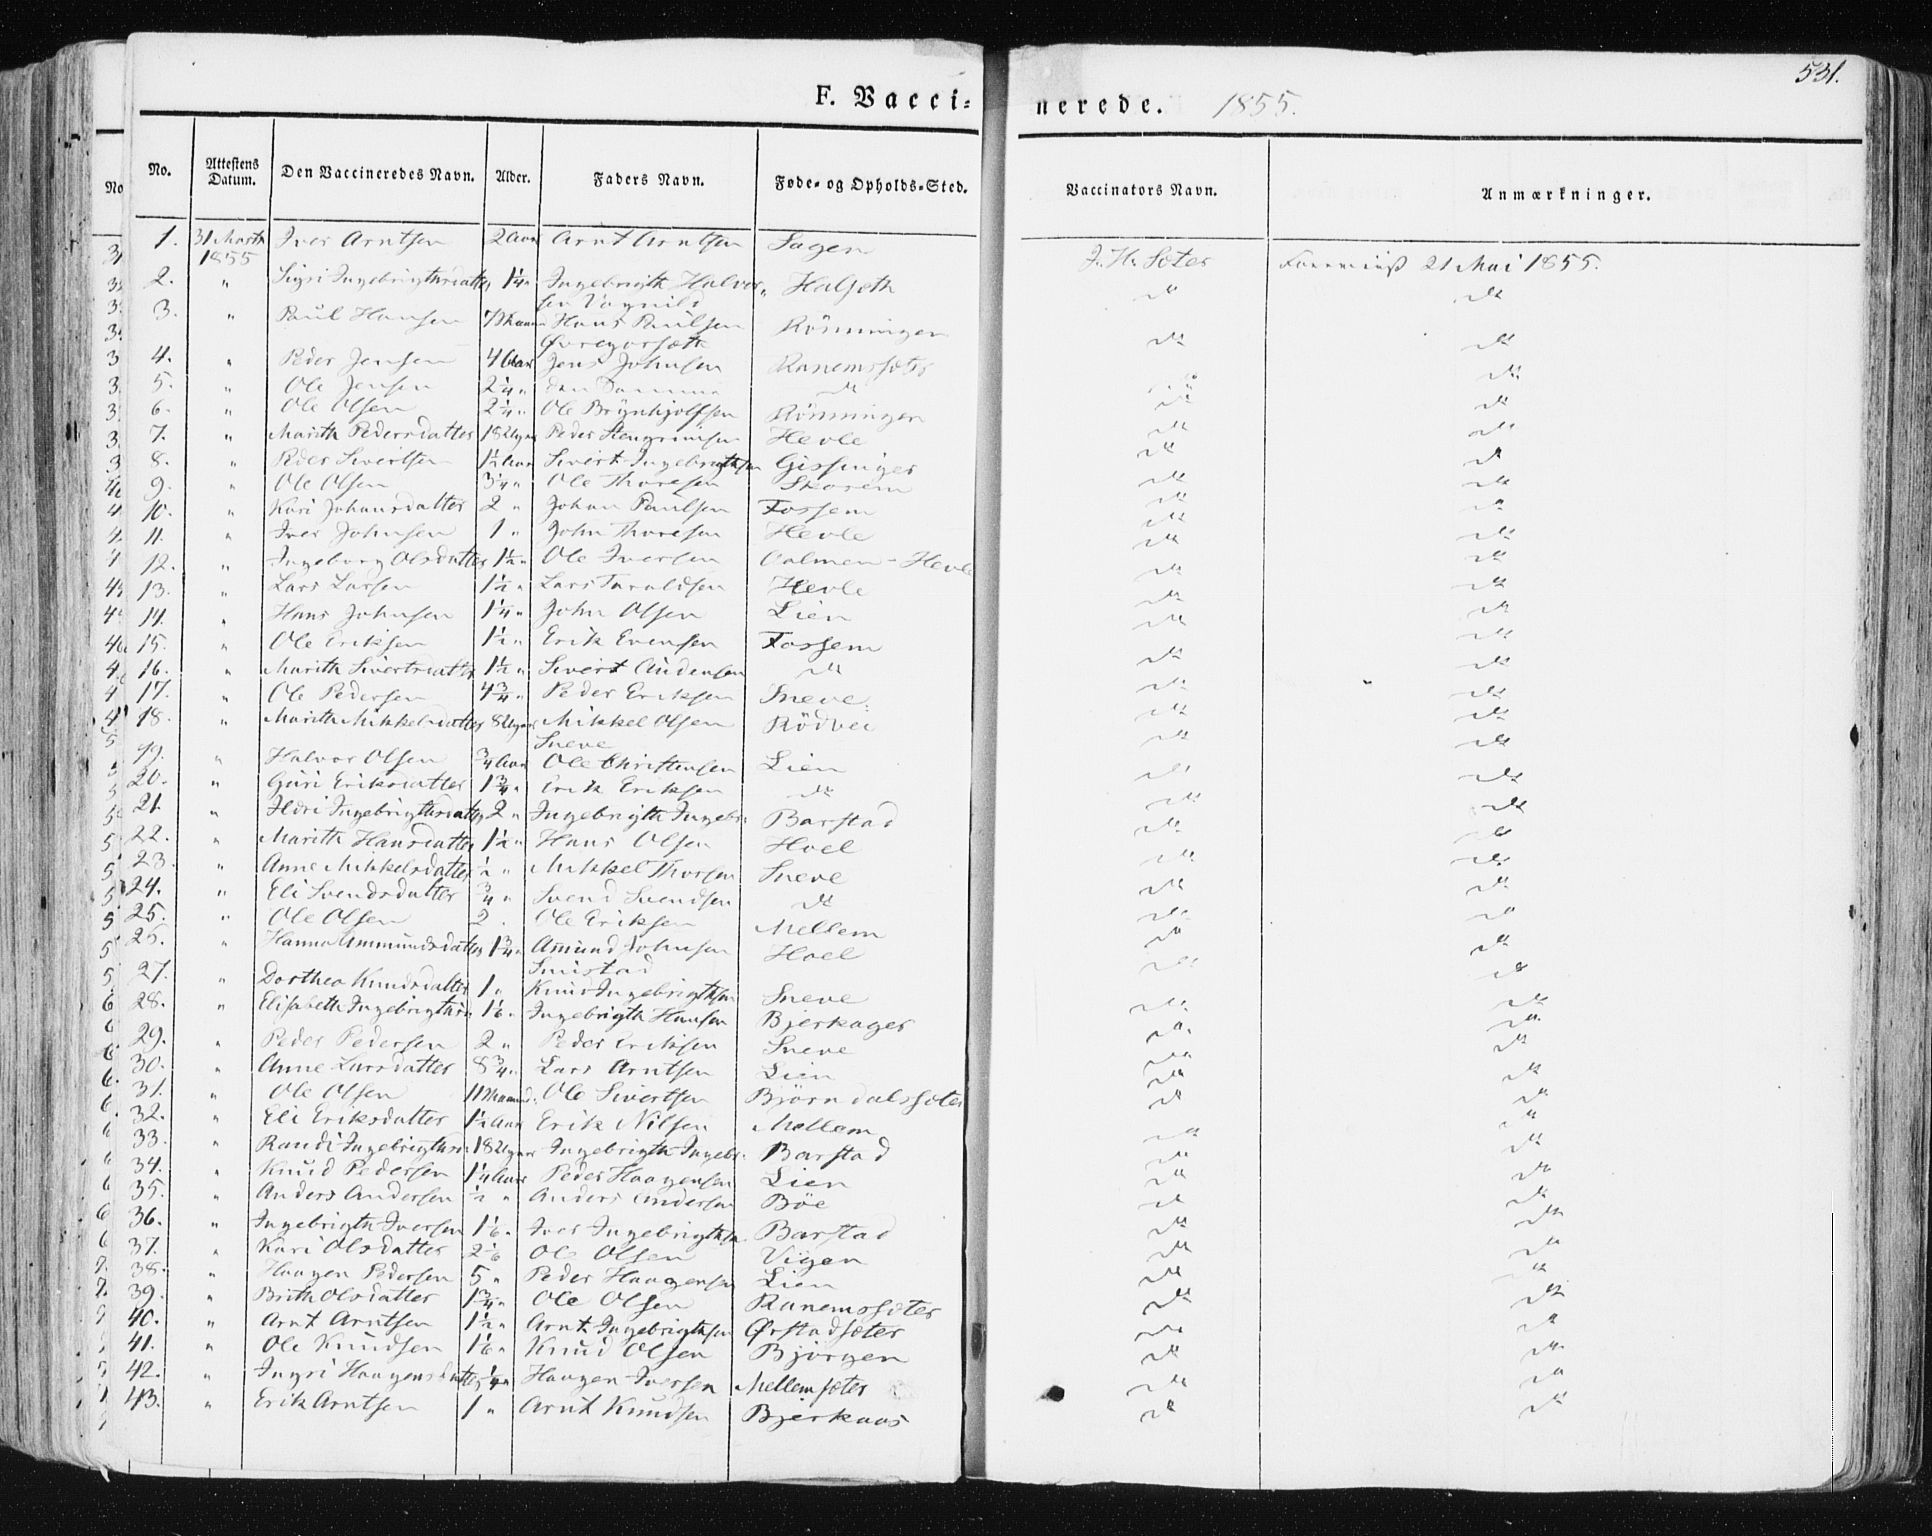 531.
F. Vacci- nerede. 1855.
No. Attestens Datum. Den Vaccineredes Navn. Alder. Faders Navn. Føde- og Opholds-Sted. Vaccinators Navn. Anmærkninger.
1. 31 Marts 1855 Iver Arntsen 2 Aar Arnt Arntsen Sagen J. H. Sæter 21 Mai 1855.
2. " Sigri Ingebrigthsdatter 1¼ " Ingebrigth Halvorsen Vognild Halseth dt dt
3. " Paul Hansen Hans Paulsen Rönningen dt dt
4. " Peder Jensen 4 Aar Jens Johnsen Ranemssæter dt dt
5. " Ole Jensen 2¼ " den Samme dt dt dt
6. " Ole Olsen 2¼ " Ole Brynhjolfsen Rönningen dt dt
7. " Marith Pedersdatter 18 Uger Peder Stengrimsen Hevle dt dt
8. " Peder Sivertsen 1½ Aar Sivert Ingebrigthsen Gissinger dt dt
9. " Ole Olsen 3¼ " Ole Thoresen Skorem dt dt
10. " Kari Johansdatter 2 " Johan Paulsen Fossem dt dt
11. " Iver Johnsen 1 " John Thoresen Hevle dt dt
12. " Ingeborg Olsdatter 1½ " Ole Iversen Oalmen-Hevle dt dt
13. " Lars Larsen 1½ " Lars Taraldsen Hevle dt dt
14. " Hans Johnsen 1¼ " John Olsen Lien dt dt
15. " Ole Eriksen 1½ " Erik Evensen Fossem dt dt
16. " Marith Sivertsdatter 1½ " Sivert Audensen dt dt dt
17. " Ole Pedersen 4¾ " Peder Eriksen Sneve dt dt
18. " Marith Mikkelsdatter 8 Uger Mikkel Olsen Sneve Rödvei dt dt
19. " Halvor Olsen ¾ Aar Ole Christensen Lien dt dt
20. " Guri Eriksdatter 1¾ " Erik Eriksen dt dt dt
21. " Ildri Ingebrigthsdatter 2 " Ingebrigth Ingebr. Barstad dt dt
22. " Marith Hansdatter 1½ " Hans Olsen Hoel dt dt
23. " Anne Mikkelsdatter ½ " Mikkel Thorsen Sneve dt dt
24. " Eli Svendsdatter ¾ " Svend Svendsen dt dt dt
25. " Ole Olsen 2 " Ole Eriksen Mellem dt dt
25. " Hanna Ammundsdatter 1¾ " Amund Johnsen Smistad Hoel dt dt
27. " Dorthea Knudsdatter 1 " Knud Ingebrigthsen Sneve dt dt
28. " Elisabeth Ingebrigthsd 1⅙ " Ingebrigth Hansen Bjerkager dt dt
29. " Peder Pedersen 2 " Peder Eriksen Sneve dt dt
30. " Anne Larsdatter 8¾ " Lars Arntsen Lien dt dt
31. " Ole Olsen 11 Maaned. Ole Sivertsen Björndalssæter dt dt
32. " Eli Eriksdatter 1½ Aar Erik Nilsen Mellem dt dt
33. " Randi Ingebrigthsd 18 Uger Ingebrigth Ingebr. Barstad dt dt
34. " Knud Pedersen 1¼ Aar Peder Haagensen Lien dt dt
35. " Anders Andersen ½ " Anders Andersen Böe dt dt
36. " Ingebrigth Iversen 1⅙ " Iver Ingebrigthsen Barstad dt dt
37. " Kari Olsdatter 2⅙ Ole Olsen Vigen dt dt
38. " Haagen Pedersen 5 " Peder Haagensen Lien dt dt
39. " Brith Olsdatter 1¾ " Ole Olsen Ranemssæter dt dt
40. " Arnt Arntsen 1½ " Arnt Ingebrigthsen Ørstadsæter dt dt
41. " Ole Knudsen 1⅙ " Knud Olsen Bjørgen dt dt
42. " Ingri Haagensdatter ¼ " Haagen Iversen Mellemsæter dt dt
43. " Erik Arntsen 1 " Arnt Knudsen Bjerkaas dt dt